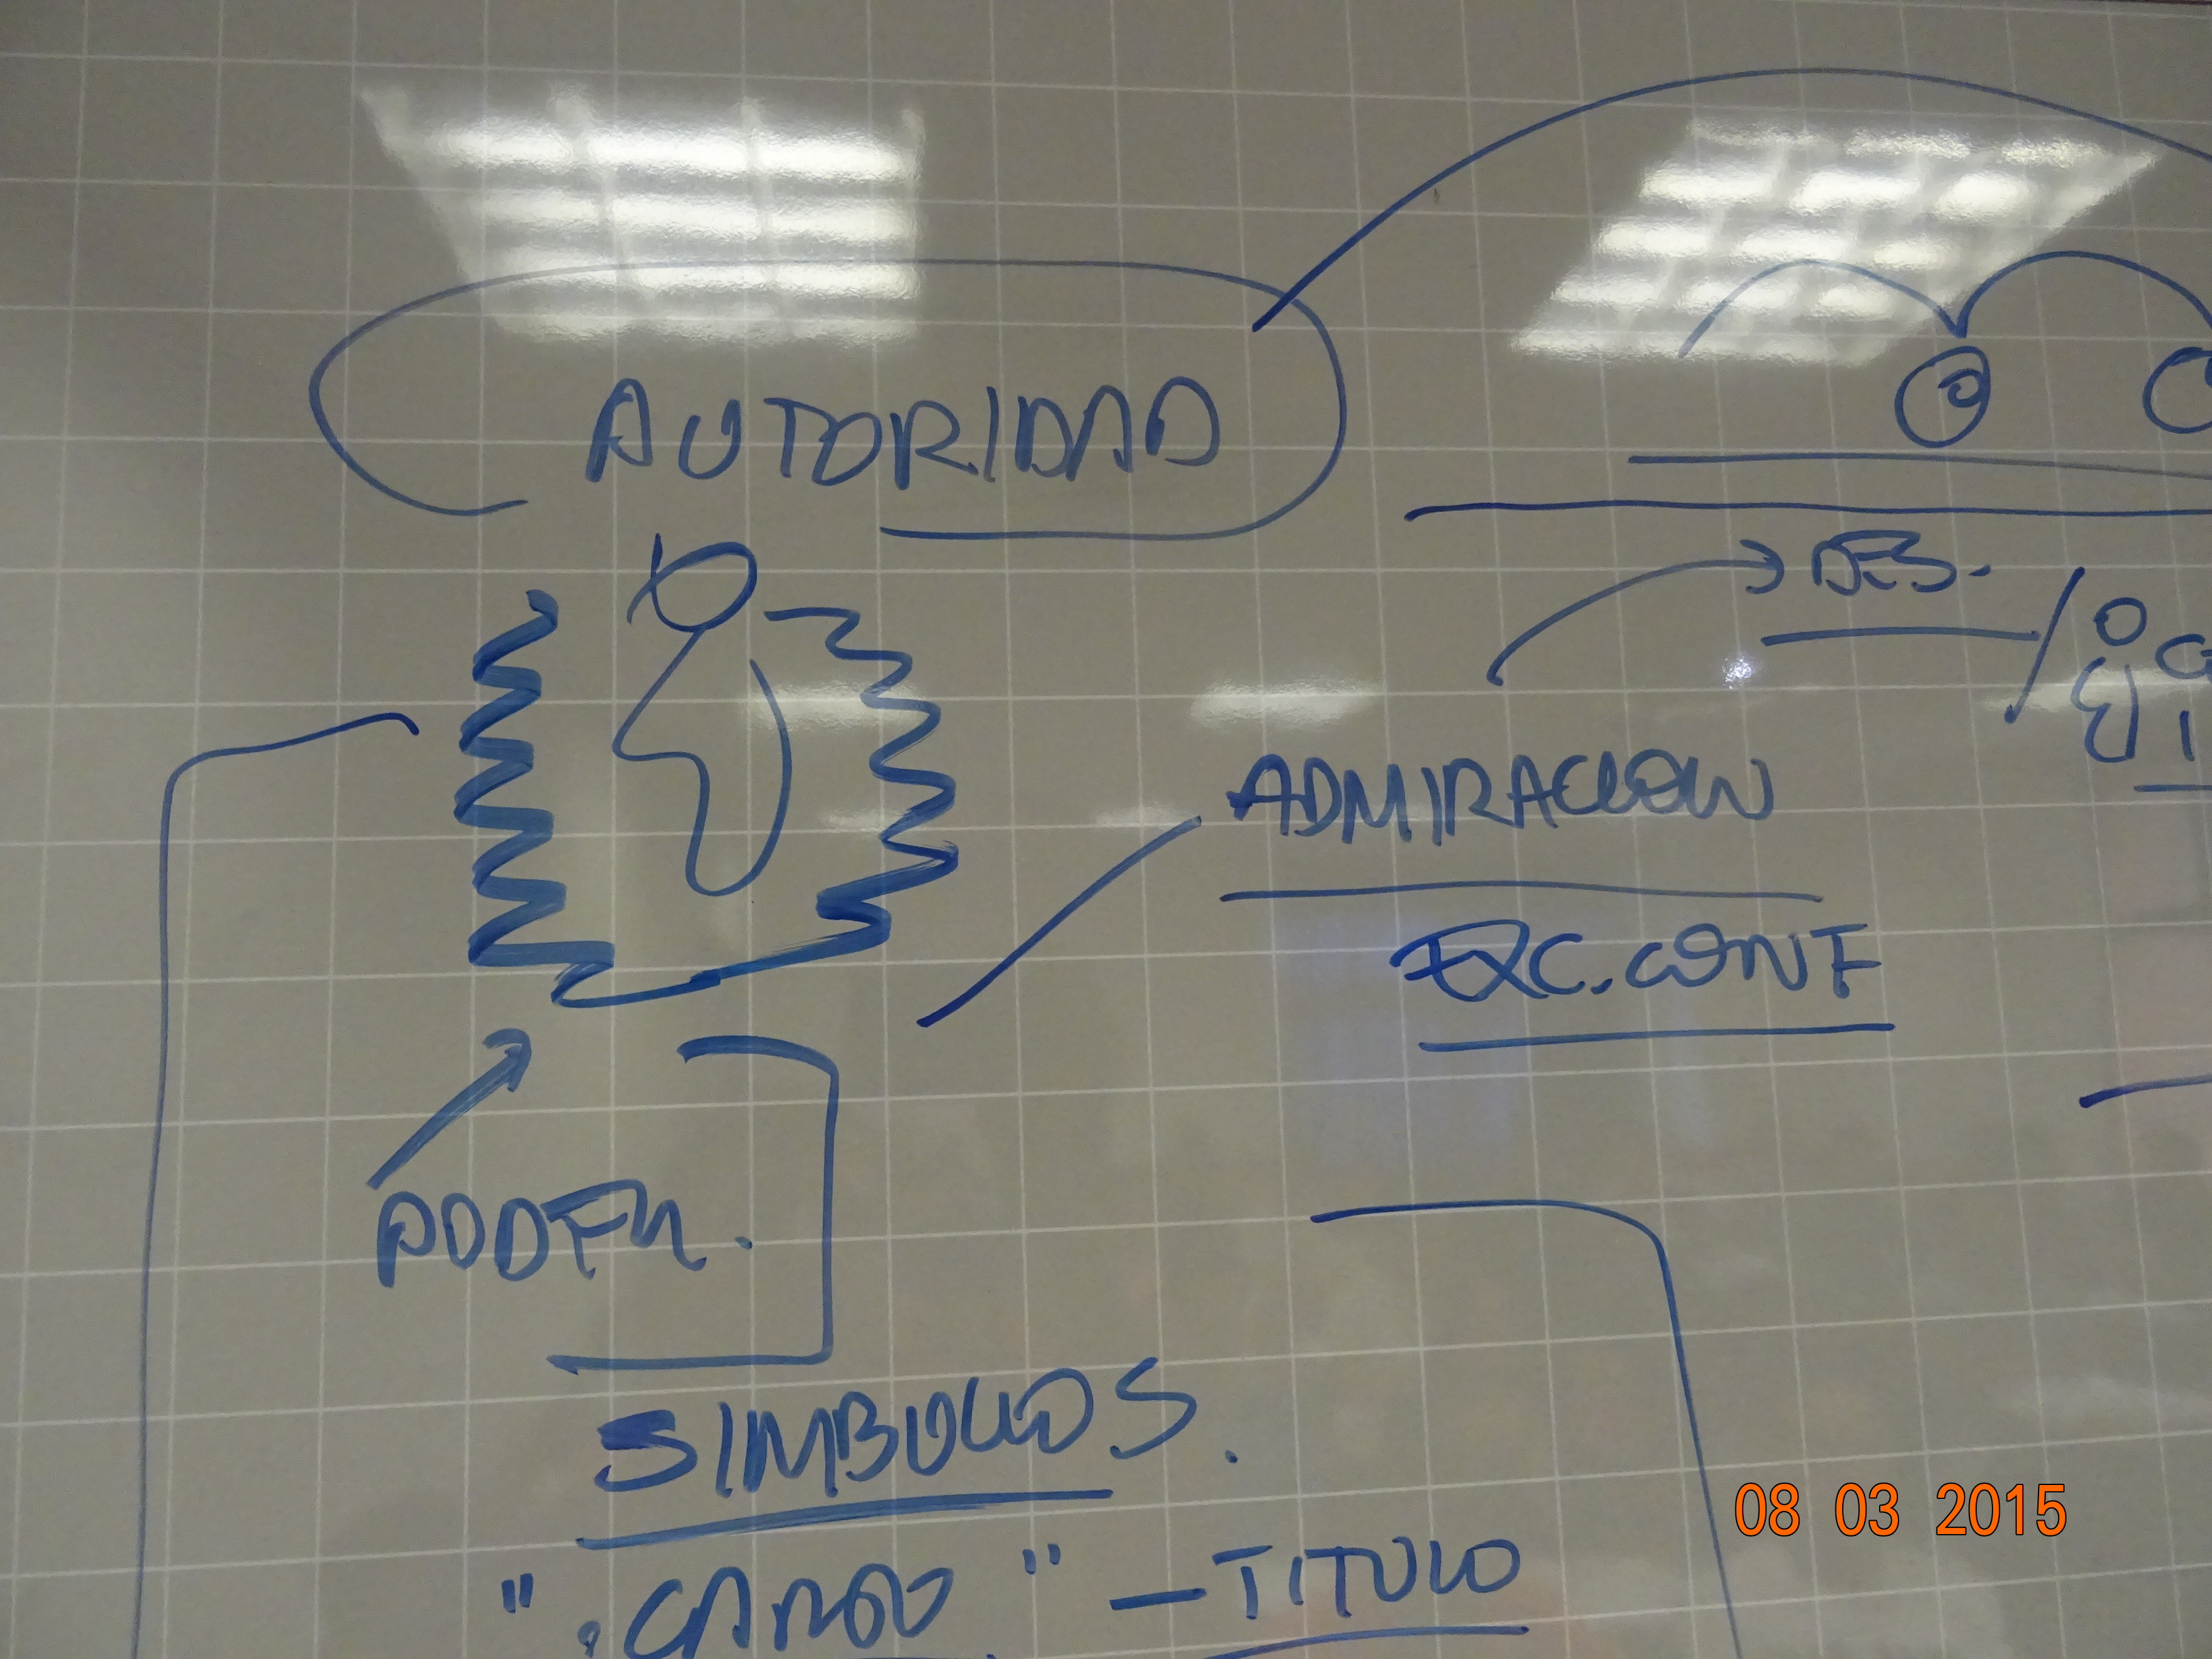 AUTORIDAD
DES.
ADMIRACION
EXC. CONF
PODER.
SIMBOLOS.
"CARGO" - TITULO
08 03 2015